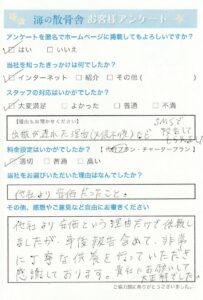 海の散骨舎 お客様アンケート
アンケートを匿名でホームページに掲載してもよろしいですか?
はい いいえ
当社を知ったきっかけは何でしたか?
インターネット 紹介 その他(
スタッフの対応はいかがでしたか?
大変満足 よかった 普通 不満
【理由をお聞かせください】
出航が遅れた理由
料金設定はいかがでしたか? 【代行プラン・チャータープラン】
適切 普通 高い
当社をお選びいただいた理由はなんでしたか?
他社より安価だったこと。
その他、感想やご意見など自由にお書きください
他社より安価という理由だけで依頼
しましたが、事後報告含めて、非常
に丁寧な供養を行っていただき
感謝しております。貴社にお願いして
ご協力誠にありがとうございました。